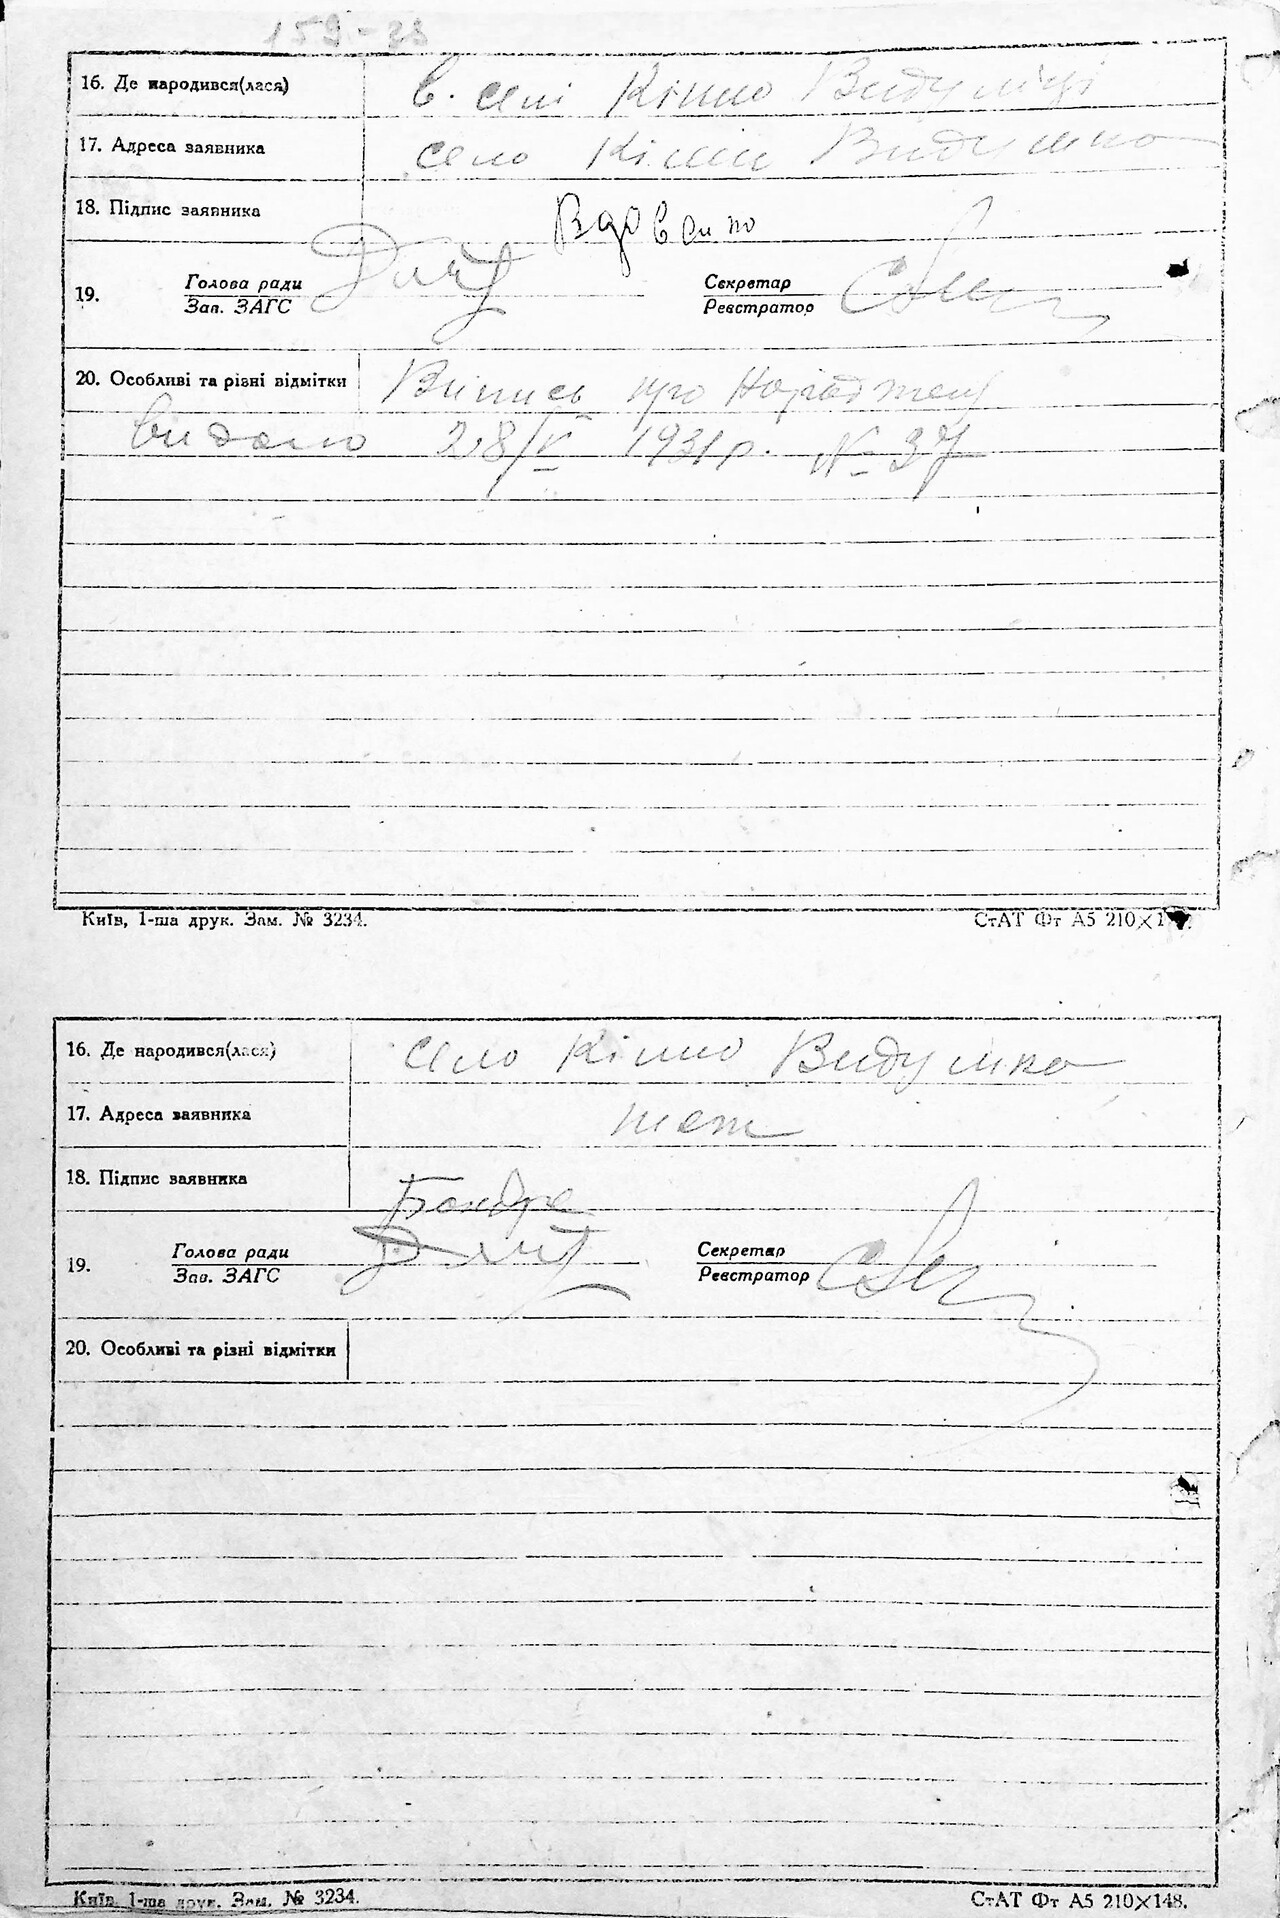 159-33
16. Де народився(лася) в. селі Кішно Видумці
17. Адреса заявника село Кішно Видумка
18. Підпис заявника Вдовенно
19. Голова ради Секретар
Зав. ЗАГС Реєстратор
20. Особливі та різні відмітки Випись про народжен
видано 28/V 1931р. № 37
Київ, 1-ша друк. Зам. № 3234. СтАТ Фт А5 210×1
16. Де народився(лася) село Кішно Видумка
17. Адреса заявника теж
18. Підпис заявника Бондре
19. Голова ради Секретар
Зав. ЗАГС Реєстратор
20. Особливі та різні відмітки
Київ, 1-ша друк. Зам. № 3234. СтАТ Фт А5 210×148.